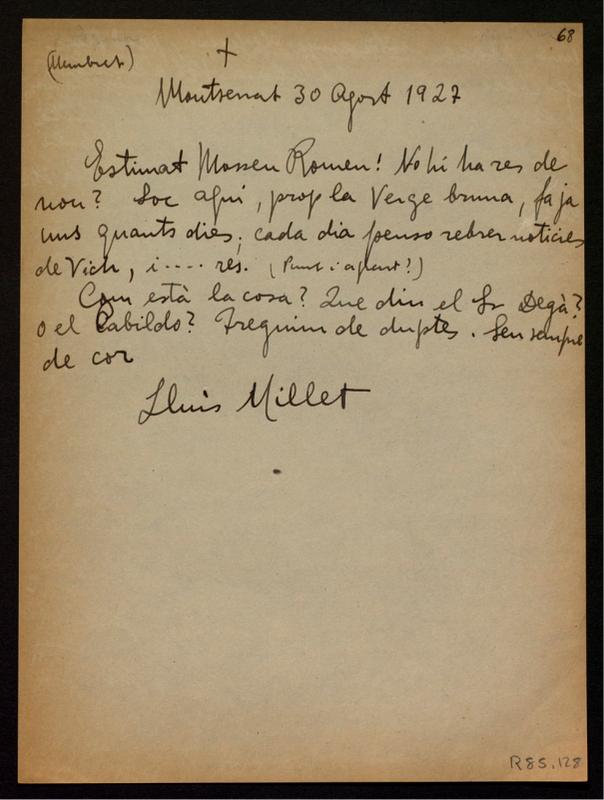 68
(Membret)
+
Montserrat 30 Agost 1927
Estimat Mossen Romeu! No hi ha res de
nou? Soc aquí, prop la Verge bruna, fa ja
uns quants dies; cada dia penso rebrer noticies
de Vich, i .... res. (Punt i apart?)
Com està la cosa? Que diu el Sr Degà?
o el Cabildo? Treguim de duptes. Seu sempre
de cor
Lluis Millet
R85.128